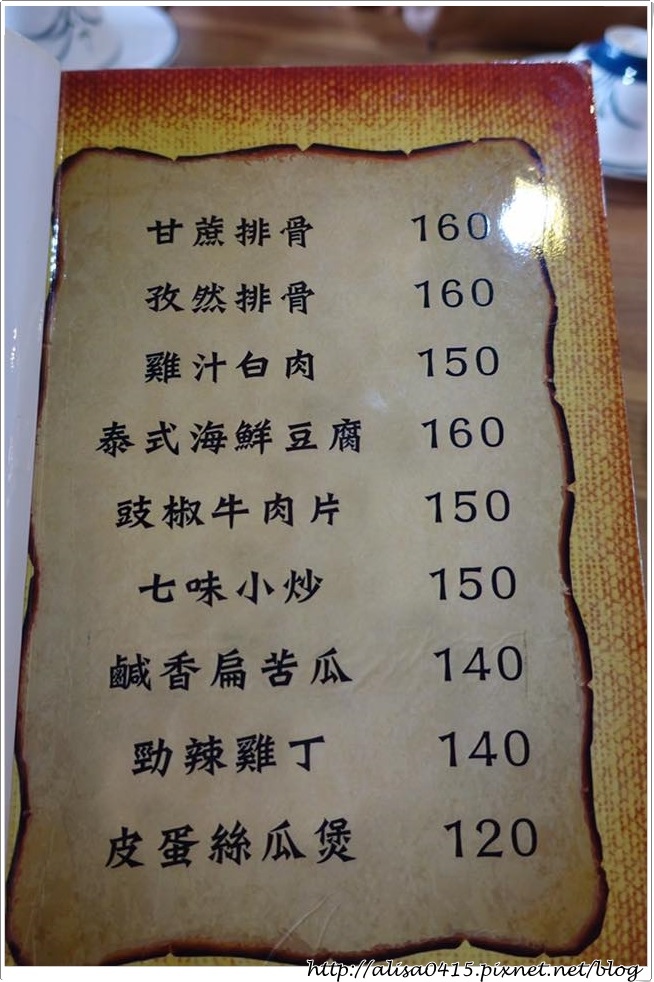 甘蔗排骨 160
孜然排骨 160
雞汁白肉 150
泰式海鮮豆腐 160
豉椒牛肉片 150
七味小炒 150
鹹香扁苦瓜 140
勁辣雞丁 140
皮蛋絲瓜煲 120
http://alisa0415.pixnet.net/blog